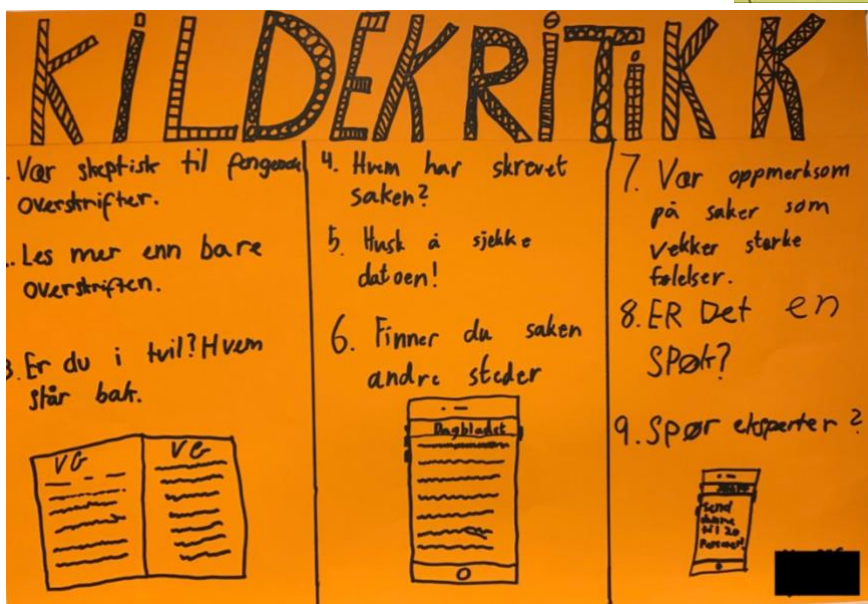 KiLDEKRiTiKK
. Vær skeptisk til fengende
overskrifter.
. Les mer enn bare
overskriften.
3. Er du i tvil? Hvem
står bak.
VG
VG
4. Hvem har skrevet
saken?
5. Husk å sjekke
datoen!
6. Finner du saken
andre steder
Dagbladet
7. Vær oppmerksom
på saker som
vekker sterke
følelser.
8. ER Det en
SPØK?
9. SPØr eksperter?
Send
denne
til 20
Personer!